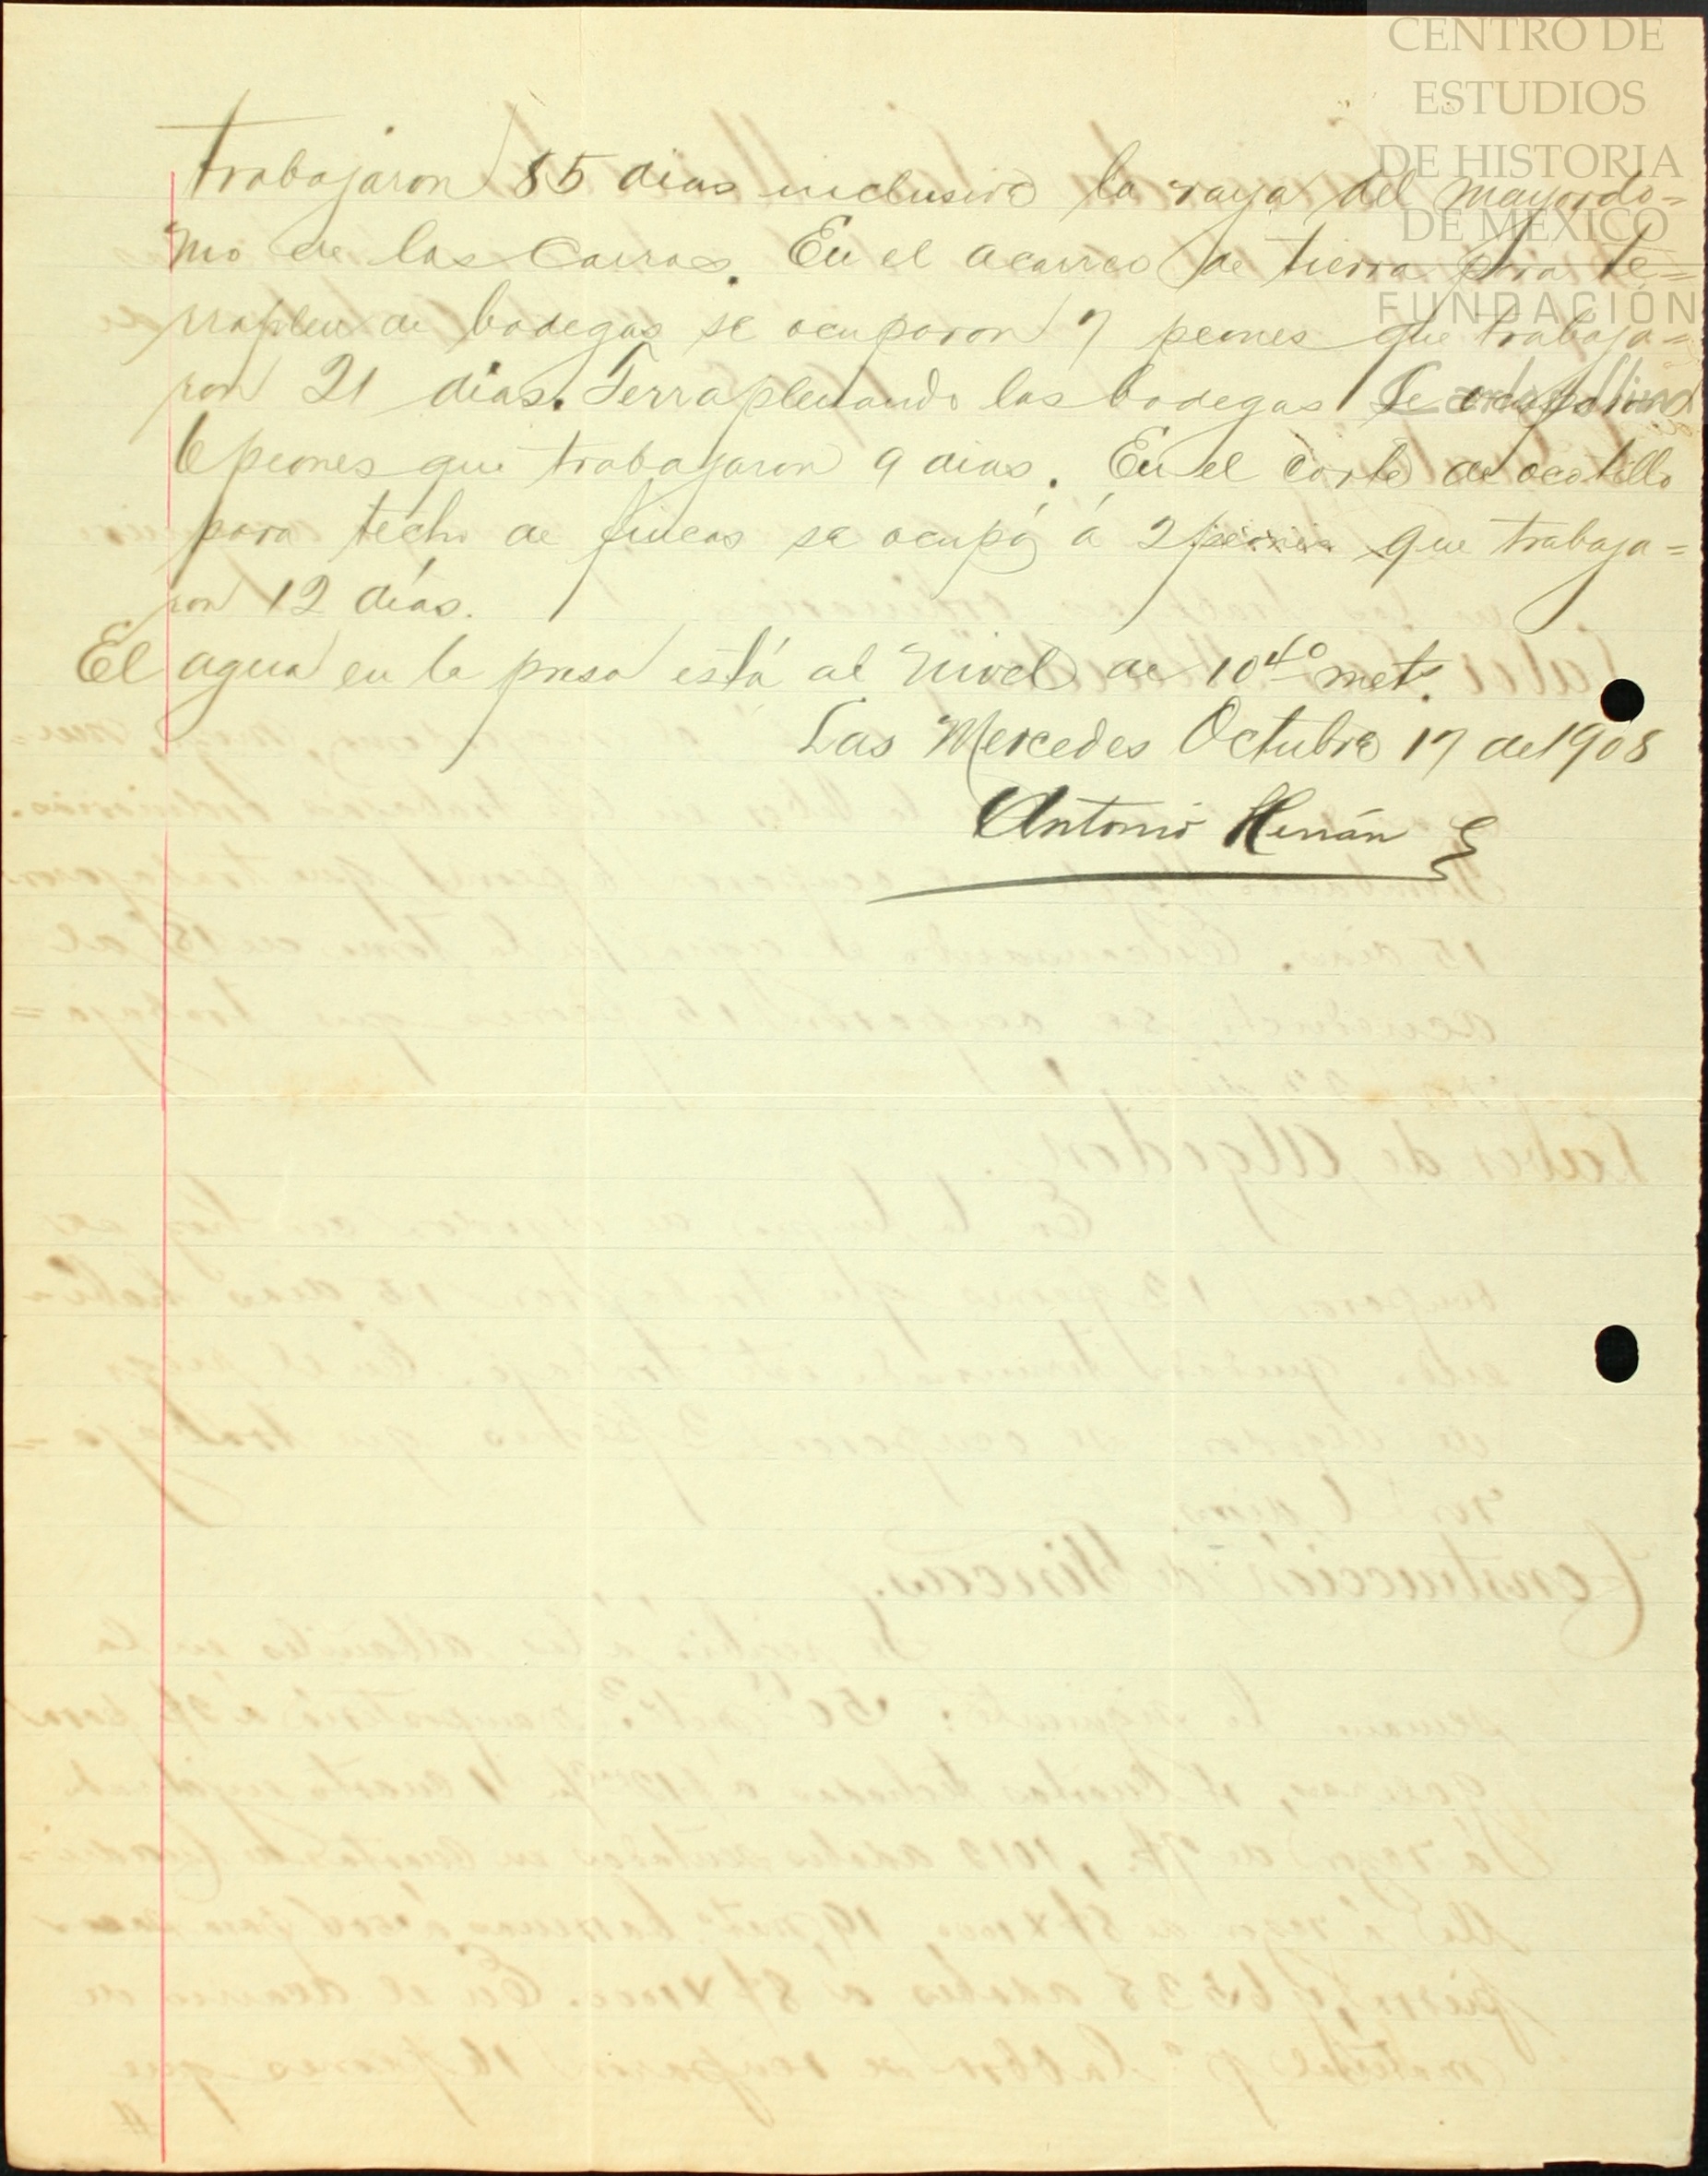 CENTRO DE
ESTUDIOS
DE HISTORIA
DE MÉXICO
FUNDACIÓN
trabajaron 85 dias inclusive la raya del mayordo=
mo de los Carros. En el acarreo de tierra para te=
rraplen de bodegas se ocuparon 7 peones que trabaja=
ron 21 dias. Terraplenando las bodegas se ocuparon
6 peones que trabajaron 9 dias. En el corte de ocotillo
para techo de fincas se ocupó á 2 peones que trabaja=
ron 12 días.
El agua en la presa está al nivel de 10 40 mets.
Las Mercedes Octubre 17 de 1908
Antonio